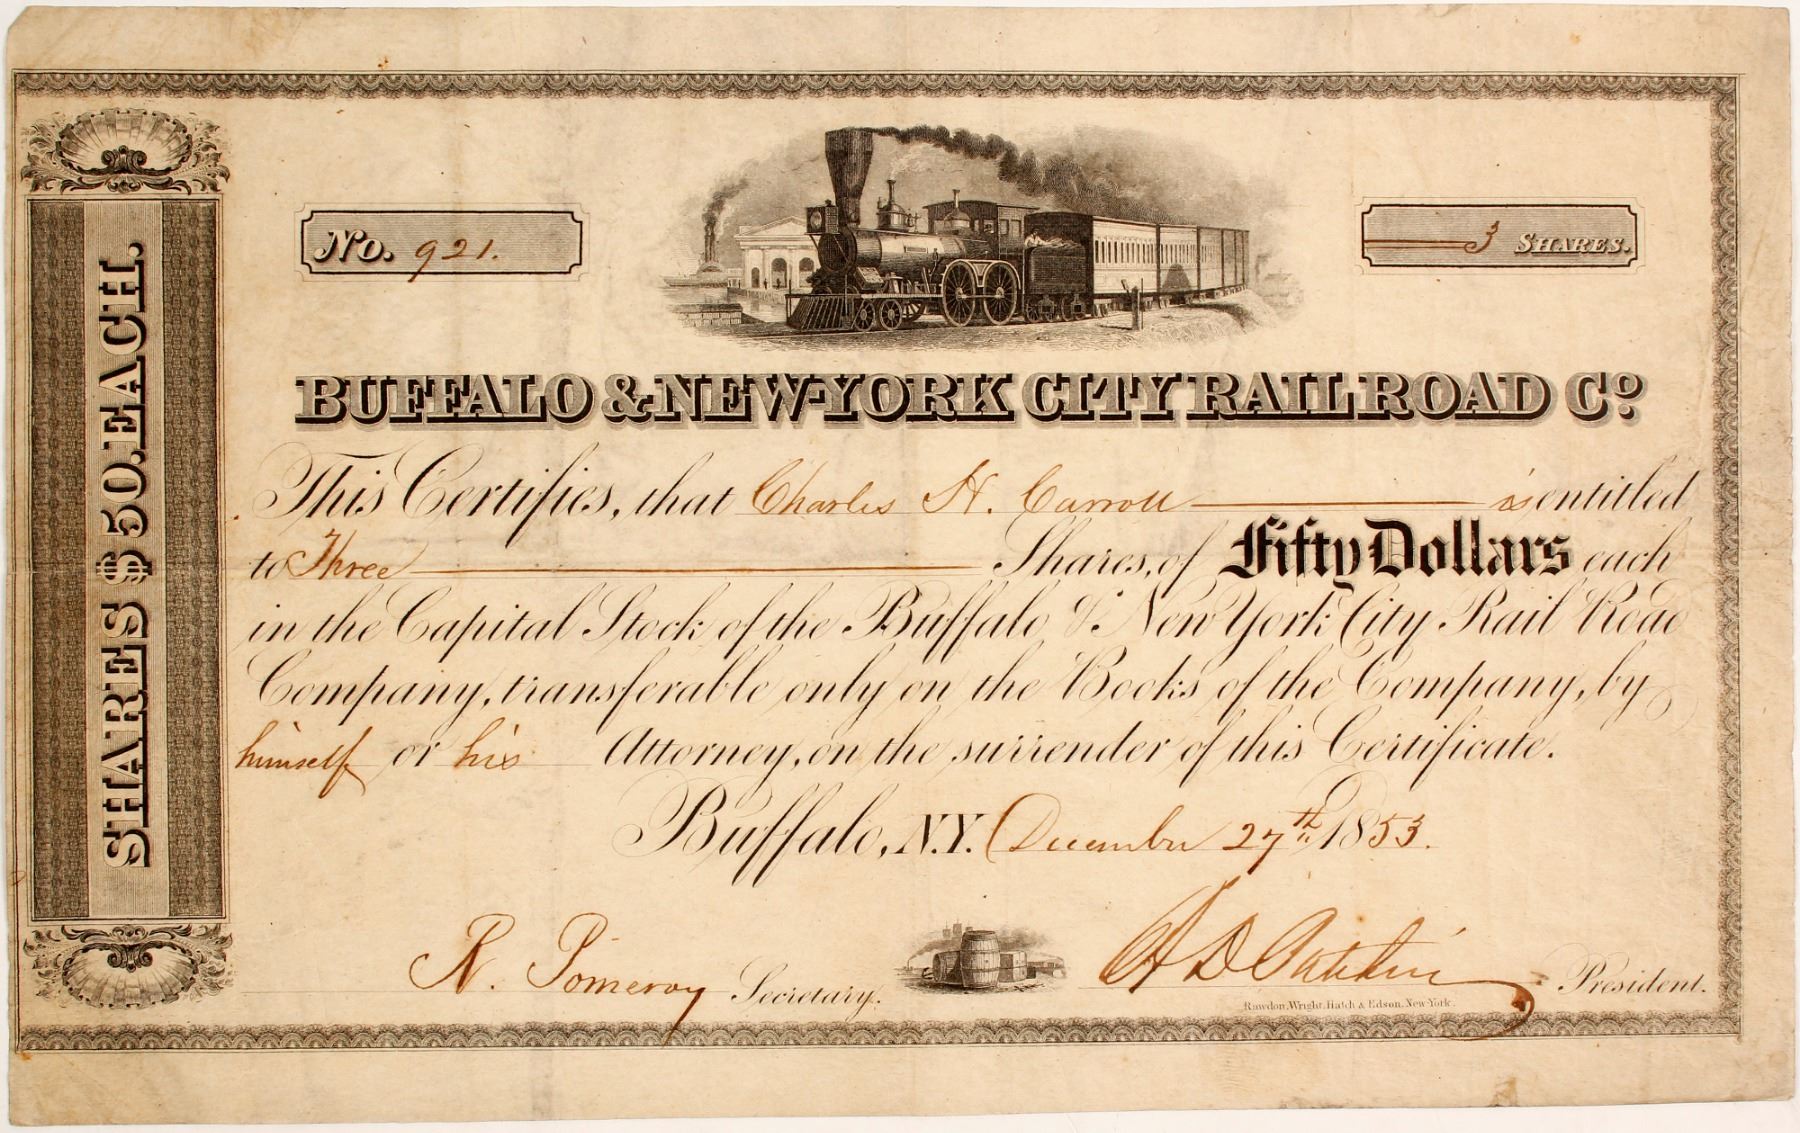 No. 921.
3 SHARES.
SHARES $50. EACH.
BUFFALO & NEW-YORK CITY RAIL ROAD Co.
This Certifies, that Charles H. Carroll is entitled
to Three Shares, of Fifty Dollars each
in the Capital Stock of the Buffalo & New York City Rail Road
Company, transferable only on the Books of the Company, by
himself or his Attorney, on the surrender of this Certificate.
Buffalo, N.Y. December 27th 1853.
R. Pomeroy Secretary.
A D Patchin President.
Rawdon, Wright, Hatch & Edson, New-York.